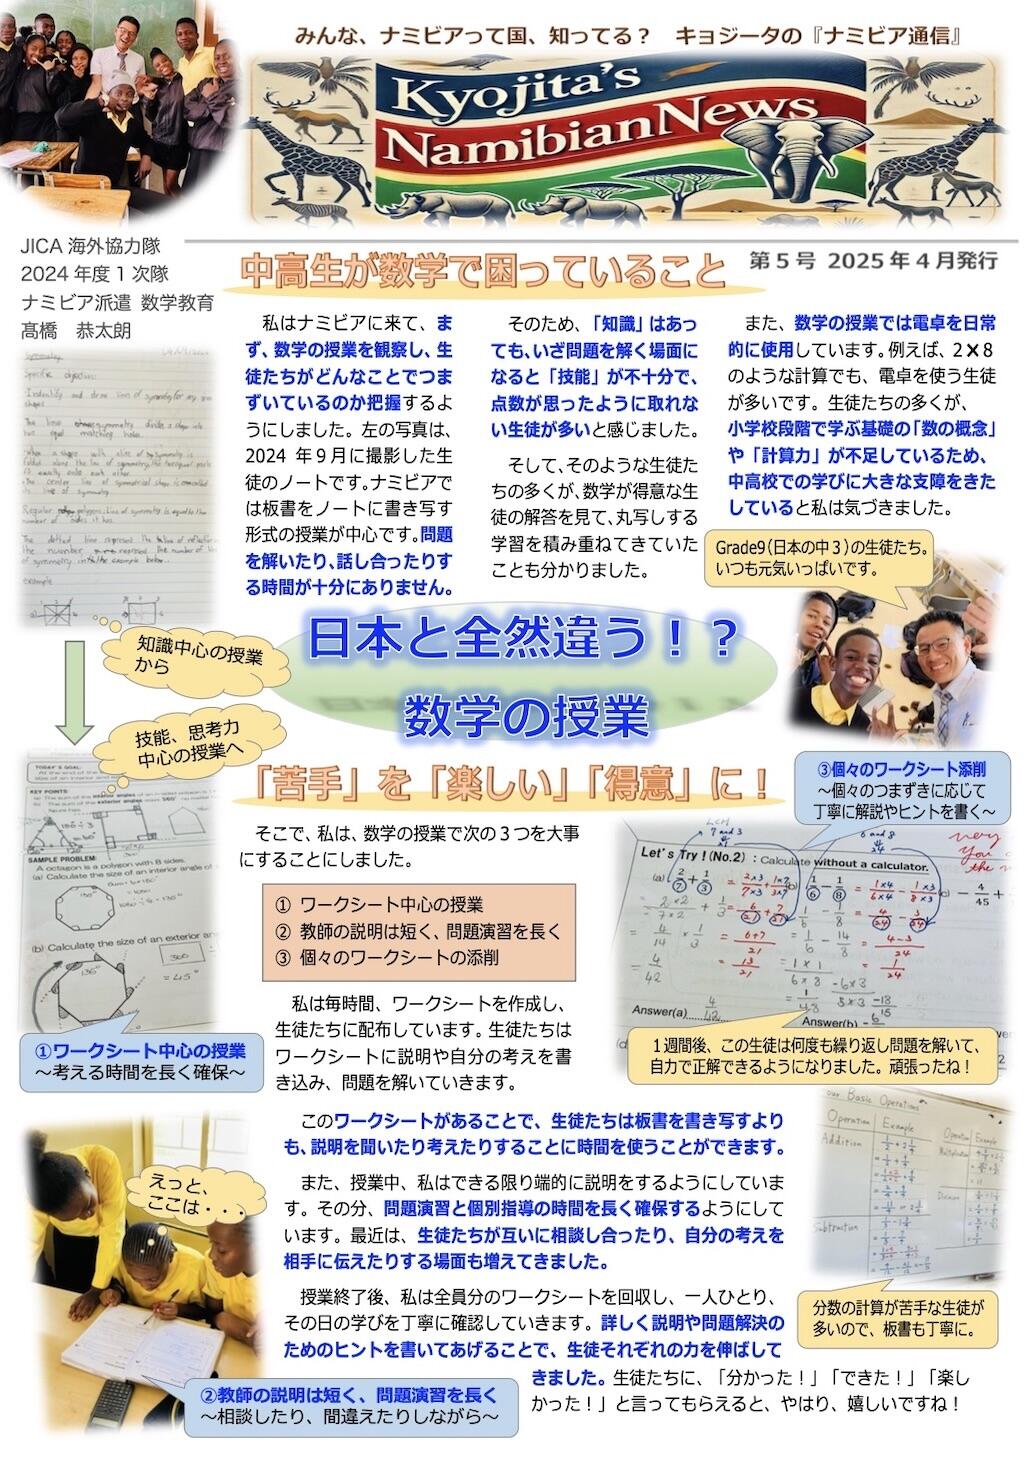 みんな、ナミビアって国、知ってる？　キョジータの『ナミビア通信』
Kyojita's
Namibian News
JICA 海外協力隊
2024 年度 1 次隊
ナミビア派遣 数学教育
髙橋　恭太朗
中高生が数学で困っていること
第５号 2025 年 4 月発行
私はナミビアに来て、ま
ず、数学の授業を観察し、生
徒たちがどんなことでつま
ずいているのか把握するよ
うにしました。左の写真は、
2024 年９月に撮影した生
徒のノートです。ナミビアで
は板書をノートに書き写す
形式の授業が中心です。問題
を解いたり、話し合ったりす
る時間が十分にありません。
そのため、「知識」はあっ
ても、いざ問題を解く場面に
なると「技能」が不十分で、
点数が思ったように取れな
い生徒が多いと感じました。
そして、そのような生徒た
ちの多くが、数学が得意な生
徒の解答を見て、丸写しする
学習を積み重ねてきていた
ことも分かりました。
また、数学の授業では電卓を日常
的に使用しています。例えば、2×8
のような計算でも、電卓を使う生徒
が多いです。生徒たちの多くが、
小学校段階で学ぶ基礎の「数の概念」
や「計算力」が不足しているため、
中高校での学びに大きな支障をきた
していると私は気づきました。
Grade9（日本の中３）の生徒たち。
いつも元気いっぱいです。
知識中心の授業
から
技能、思考力
中心の授業へ
日本と全然違う！？
数学の授業
「苦手」を「楽しい」「得意」に！
③個々のワークシート添削
～個々のつまずきに応じて
丁寧に解説やヒントを書く～
そこで、私は、数学の授業で次の３つを大事
にすることにしました。
① ワークシート中心の授業
② 教師の説明は短く、問題演習を長く
③ 個々のワークシートの添削
TODAY'S GOAL:
KEY POINTS:
SAMPLE PROBLEM:
An octagon is a polygon with 8 sides.
(a) Calculate the size of an interior angle of
(b) Calculate the size of an exterior an
= 45°
Let's Try ! (No.2) : Calculate without a calculator.
Answer(a) 4/42
Answer(b)
私は毎時間、ワークシートを作成し、
生徒たちに配布しています。生徒たちは
ワークシートに説明や自分の考えを書
き込み、問題を解いていきます。
①ワークシート中心の授業
～考える時間を長く確保～
１週間後、この生徒は何度も繰り返し問題を解いて、
自力で正解できるようになりました。頑張ったね！
このワークシートがあることで、生徒たちは板書を書き写すより
も、説明を聞いたり考えたりすることに時間を使うことができます。
また、授業中、私はできる限り端的に説明をするようにしていま
す。その分、問題演習と個別指導の時間を長く確保するようにして
います。最近は、生徒たちが互いに相談し合ったり、自分の考えを
相手に伝えたりする場面も増えてきました。
授業終了後、私は全員分のワークシートを回収し、一人ひとり、
その日の学びを丁寧に確認していきます。詳しく説明や問題解決の
ためのヒントを書いてあげることで、生徒それぞれの力を伸ばして
きました。生徒たちに、「分かった！」「できた！」「楽し
かった！」と言ってもらえると、やはり、嬉しいですね！
えっと、
ここは・・・
Basic Operations
Operation
Example
Addition
Subtraction
分数の計算が苦手な生徒が
多いので、板書も丁寧に。
②教師の説明は短く、問題演習を長く
～相談したり、間違えたりしながら～